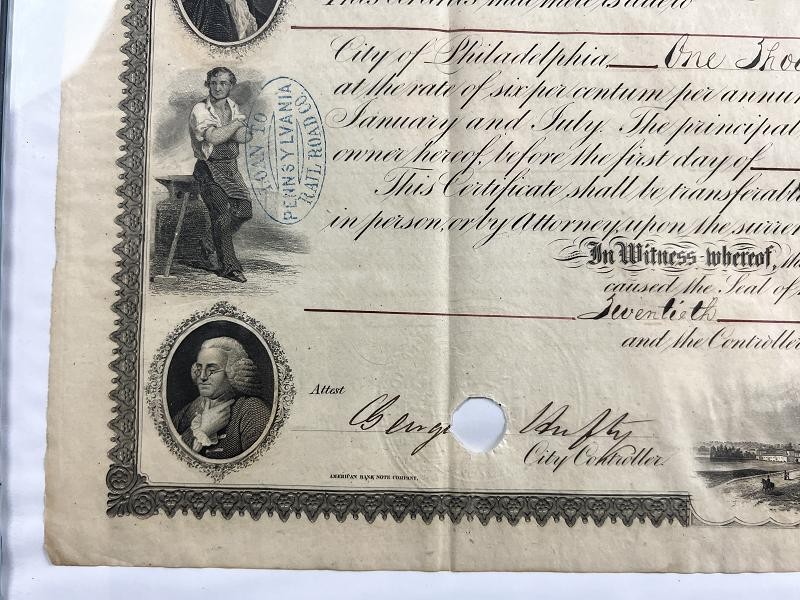 City of Philadelphia, One Thou
at the rate of six per centum per annu
January and July. The principal
owner hereof, before the first day of
This Certificate shall be transferabl
in person, or by Attorney, upon the surren
In Witness whereof, the
caused the Seal of
Twentieth
and the Controller
LOAN TO
PENNSYLVANIA
RAIL ROAD CO.
Attest
George Hufty
City Controller.
AMERICAN BANK NOTE COMPANY.